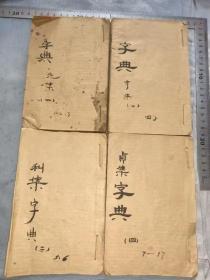 字典
元集
(一)
字典
亨集
(二)
利集
字典
(三)
5.6
貞集
字典
(四)
7—17